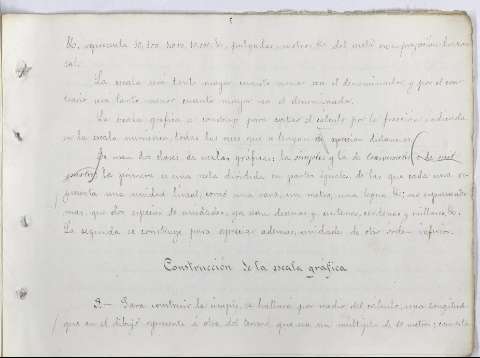 5
&. representa 50, 100, 1000, 10.000, &. pulgadas, metros, &. del metro en la proporción
sal.
La escala será tanto mayor cuanto menor sea el denominador, y por el con-
trario será tanto menor cuanto mayor sea el denominador.
La escala gráfica se construye para evitar el cálculo por la fracción indicada
en la escala numérica, todas las veces que se tengan de apreciar distancias.
Se usan dos clases de escalas gráficas: la simple y la de transversales
la primera es una recta dividida en partes iguales, de las que cada una re-
presenta una unidad lineal, como una vara, un metro, una legua &; no
mas, que dos especies de unidades, ya sean decenas y centenas, centenas y millares, &.
La segunda se construye para apreciar además, unidades de otro orden inferior.
Construcción de la escala gráfica
9.- Para construir la simple, se hallará por medio del cálculo, una longitud
que en el dibujo represente á otra del terreno que sea un múltiplo de 10 metros;